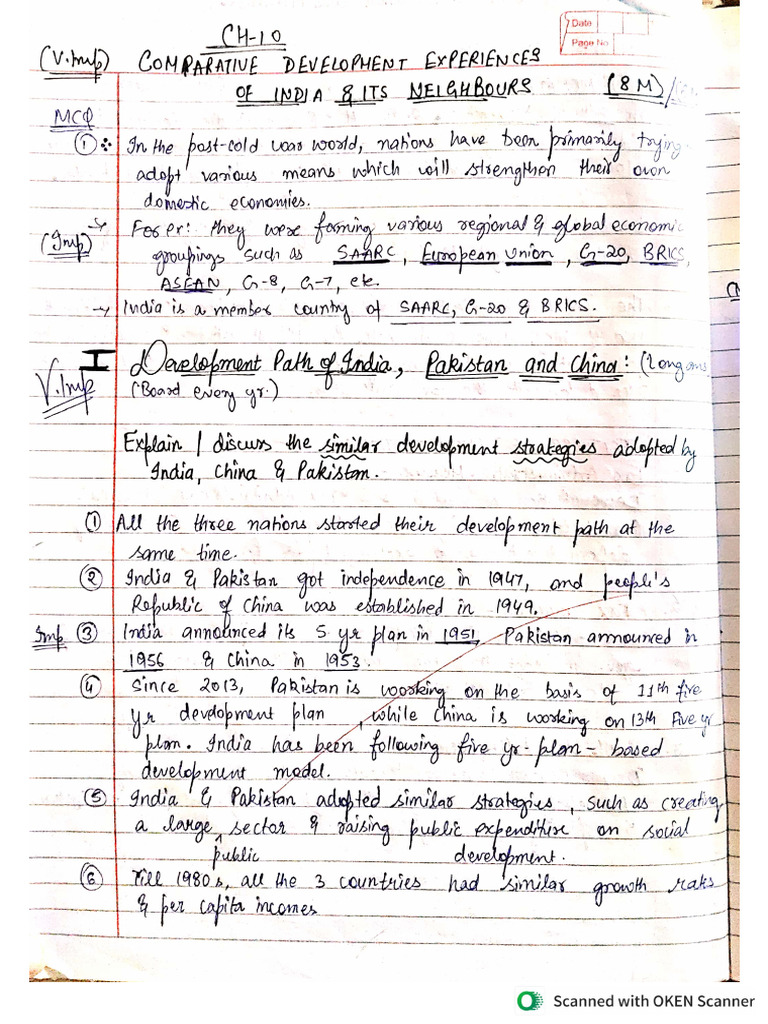 Date
Page No
CH-10
(V.Imp) COMPARATIVE DEVELOPMENT EXPERIENCES
OF INDIA & ITS NEIGHBOURS (8M)/
MCQ
① In the post-cold war world, nations have been primarily trying
adopt various means which will strengthen their own
domestic economies.
(Imp) → For ex: they were forming various regional & global economic
groupings such as SAARC, European Union, G-20, BRICS,
ASEAN, G-8, G-7, etc.
→ India is a member country of SAARC, G-20 & BRICS.
V.Imp I Development Path of India, Pakistan and China: (Long ans
(Board every yr.)
Explain / discuss the similar development strategies adopted by
India, China & Pakistan.
① All the three nations started their development path at the
same time.
② India & Pakistan got independence in 1947, and people's
Republic of China was established in 1949.
Imp ③ India announced its 5 yr plan in 1951, Pakistan announced in
1956 & China in 1953.
④ Since 2013, Pakistan is working on the basis of 11th five
yr development plan, while China is working on 13th Five yr
plan. India has been following five yr-plan-based
development model.
⑤ India & Pakistan adopted similar strategies, such as creating
a large public sector & raising public expenditure on social
development.
⑥ Till 1980s, all the 3 countries had similar growth rates
& per capita incomes
Scanned with OKEN Scanner